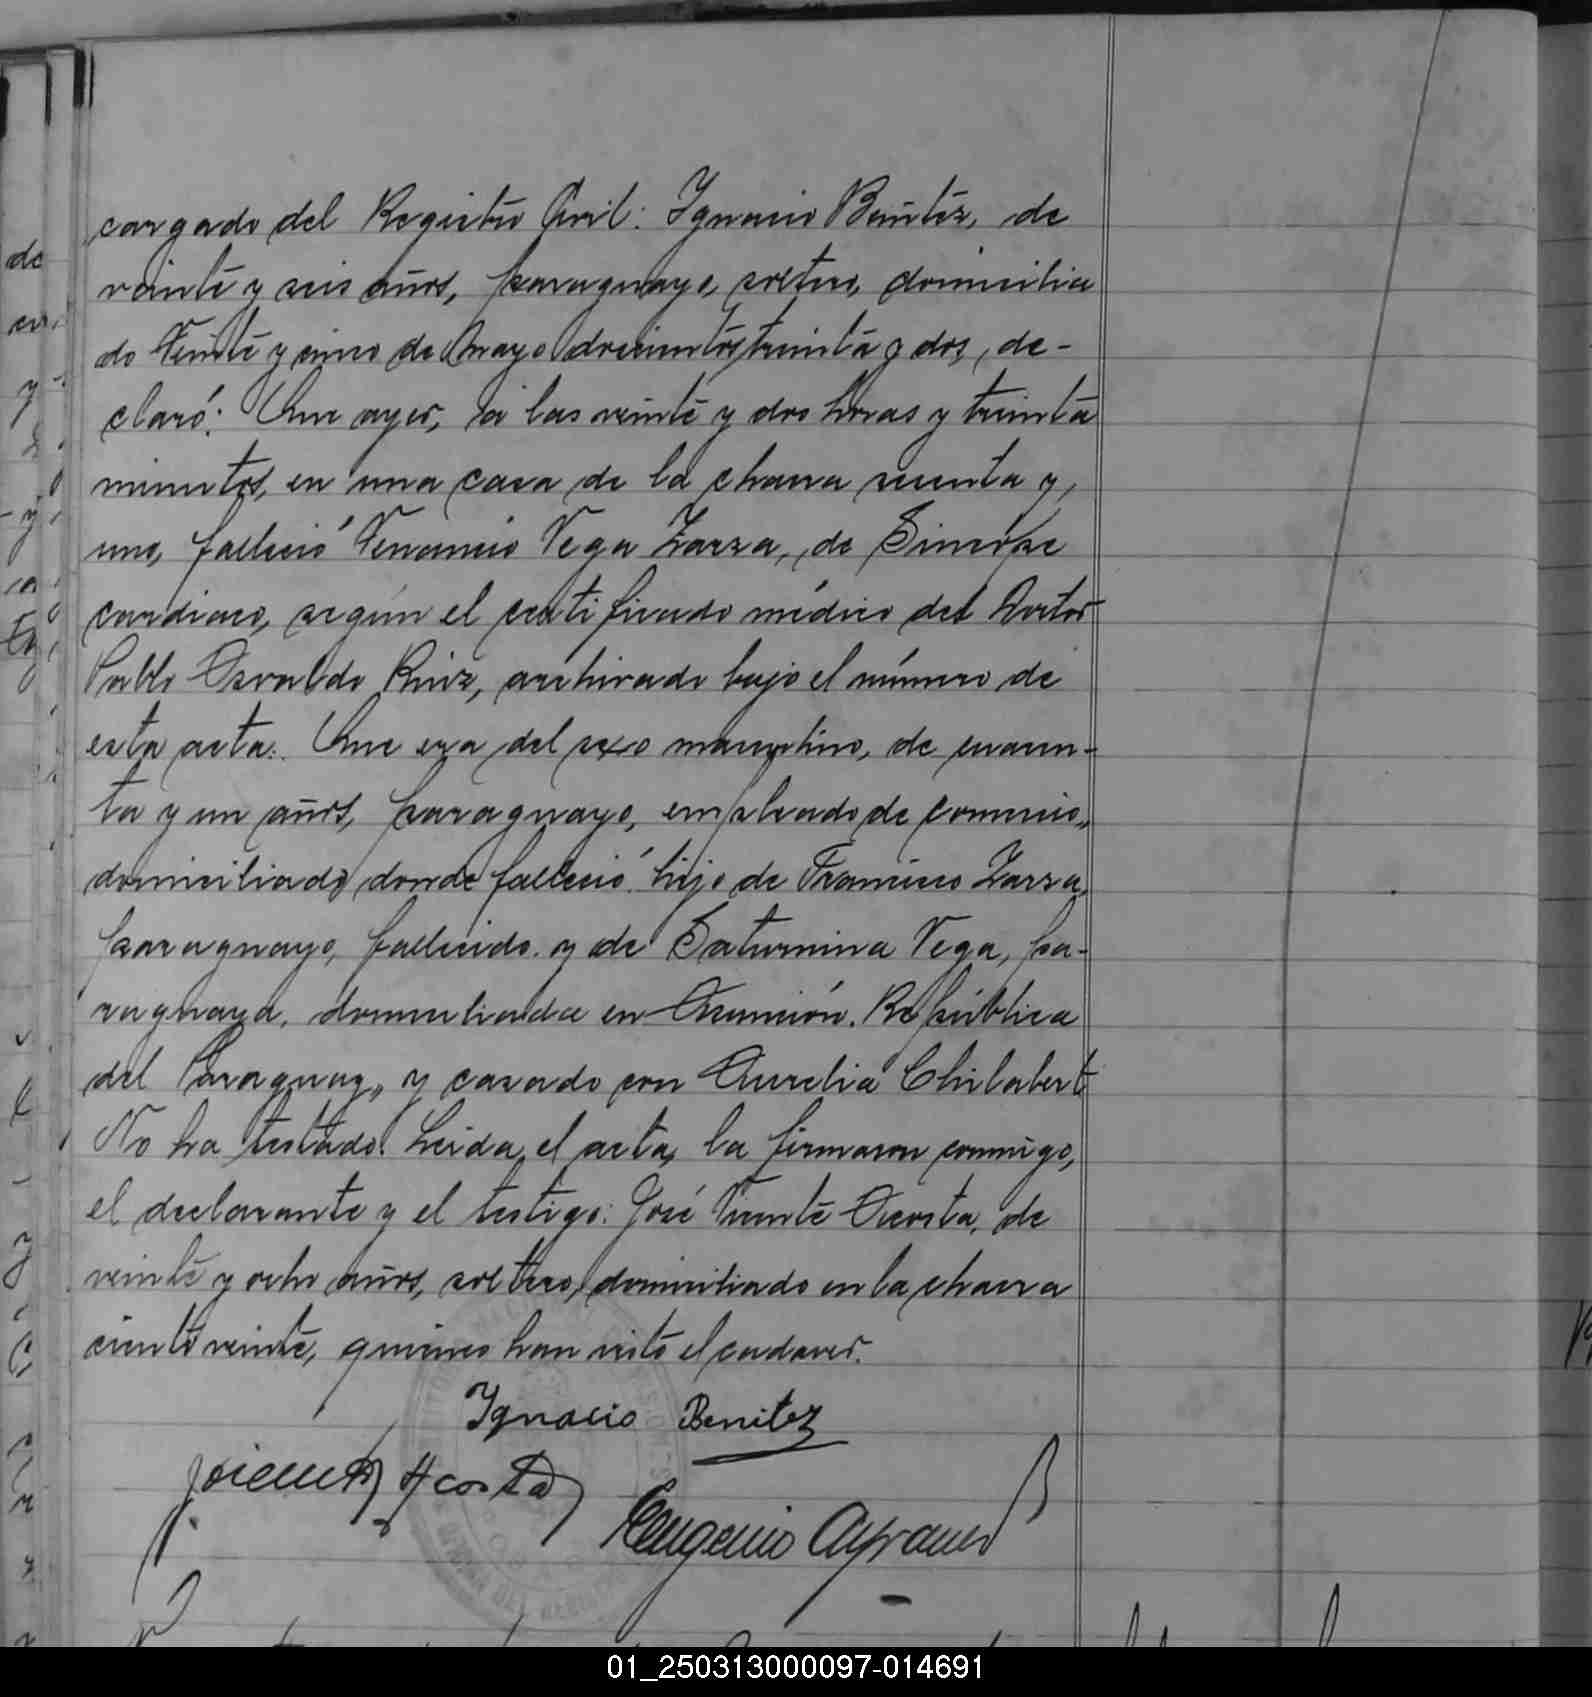 cargado del Registro Civil: Ignacio Benítez, de
veinte y seis años, paraguayo, soltero, domicilia
do Veinte y cinco de Mayo doscientos treinta y dos, de-
claró: Que ayer, á las veinte y dos horas y treinta
minutos, en una casa de la chacra sesenta y
uno, falleció Venancio Vega Zarza, de Sincope
cardiaco, según el certificado médico del Doctor
Pablo Osvaldo Ruiz, archivado bajo el número de
esta acta. Que era del sexo masculino, de cuaren-
ta y un años, paraguayo, empleado de comercio,
domiciliado donde falleció: hijo de Francisco Zarza,
paraguayo, fallecido y de Saturnina Vega, pa-
raguaya, domiciliada en Asunción, República
del Paraguay, y casado con Aurelia Chilabert
No ha testado. Leida el acta, la firmaron conmigo,
el declarante y el testigo: José Vicente Acosta, de
veinte y ocho años, soltero, domiciliado en la chacra
ciento veinte, quienes han visto el cadaver.
Ignacio Benitez
Acosta
Eugenio
01_250313000097-014691